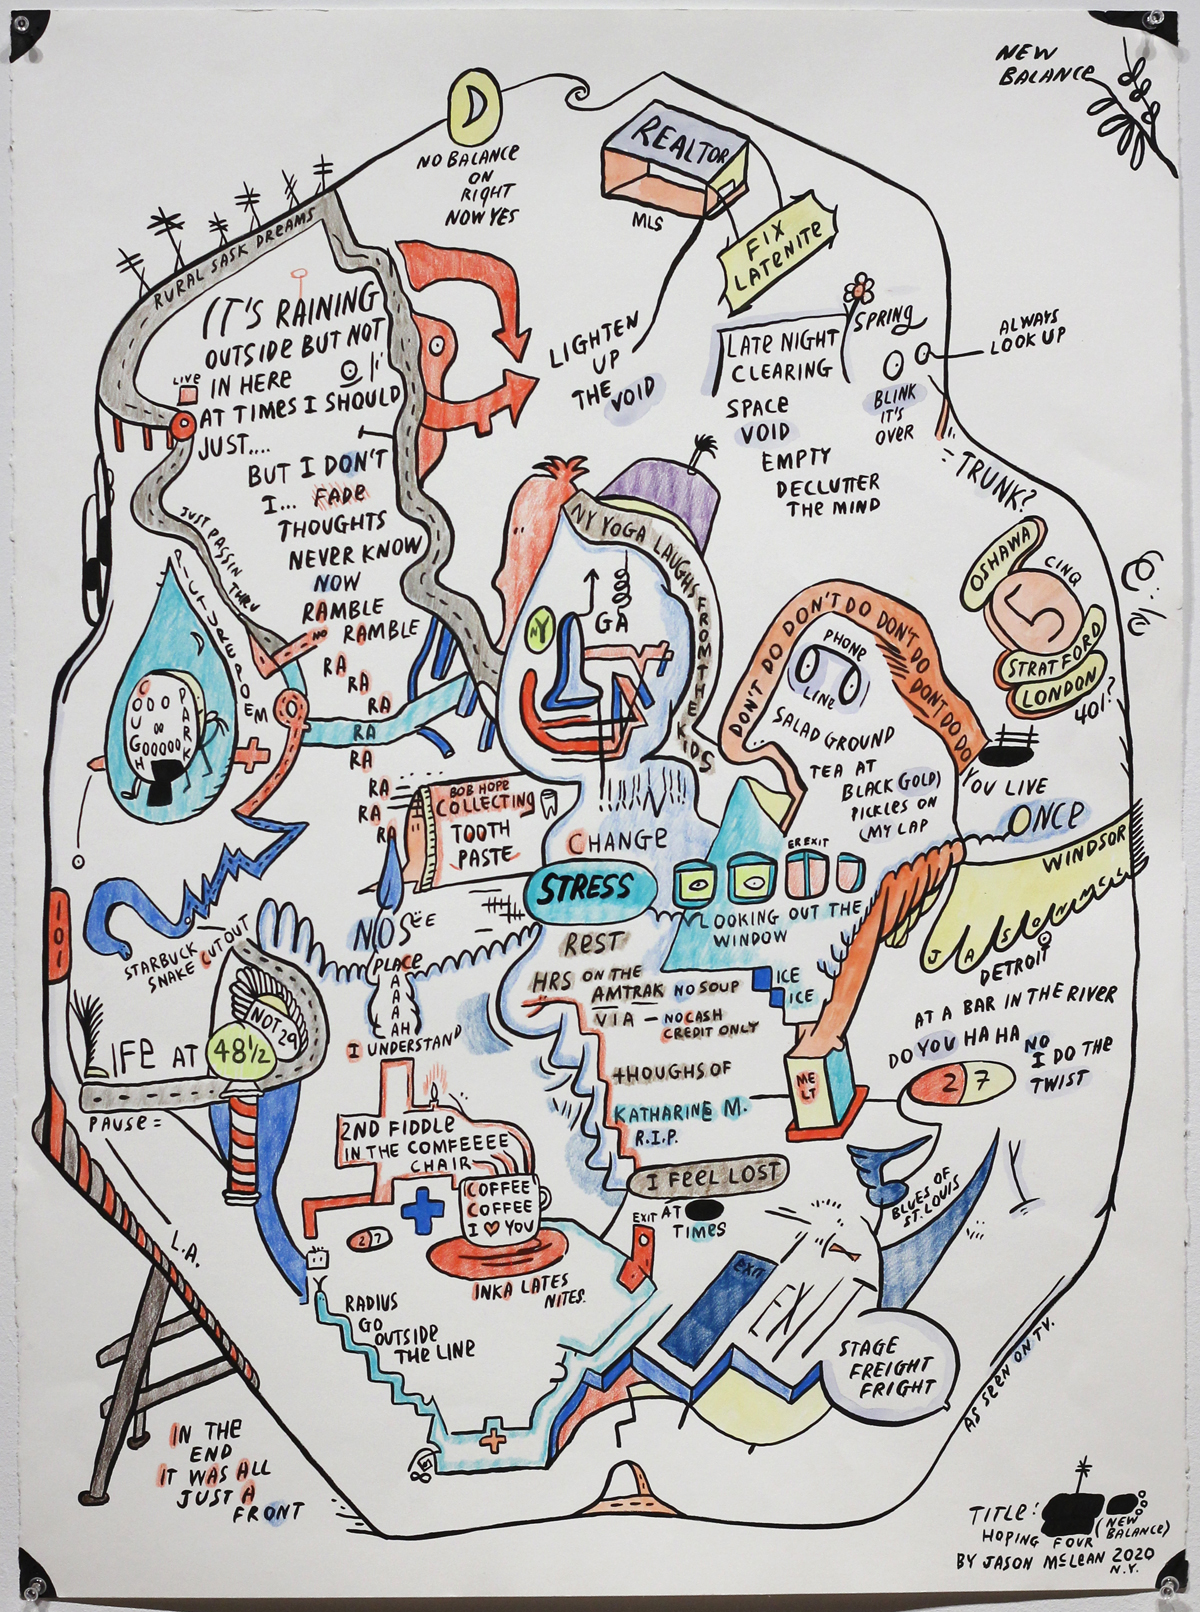 NEW
BALANCE
NO BALANCE
ON
RIGHT
NOW YES
REALTOR
MLS
FIX
LATENITE
RURAL SASK DREAMS
IT'S RAINING
OUTSIDE BUT NOT
IN HERE
LIVE
AT TIMES I SHOULD
JUST....
BUT I DON'T
I... FADE
THOUGHTS
NEVER KNOW
NOW
RAMBLE
NO RAMBLE
RA
RA
RA
RA
RA
RA
RA
RA
LIGHTEN
UP
THE VOID
LATE NIGHT
CLEARING
SPACE
VOID
EMPTY
DECLUTTER
THE MIND
SPRING
ALWAYS
LOOK UP
BLINK
IT'S
OVER
= TRUNK?
OSHAWA
CINQ
5
STRATFORD
LONDON
401?
JUST PASSIN THRU
PICTUREPOEM
COUGH
PARK
NY YOGA LAUGHS FROM THE KIDS
NY
GA
DON'T DO DON'T DO DON'T DO DON'T DO DO
PHONE
LINE
SALAD GROUND
TEA AT
BLACK GOLD
PICKLES ON
MY LAP
YOU LIVE
ONCE
WINDSOR
JASON MCL
DETROIT
BOB HOPE
COLLECTING
TOOTH
PASTE
CHANGE
STRESS
EREXIT
LOOKING OUT THE
WINDOW
REST
HRS ON THE
AMTRAK NO SOUP
VIA – NO CASH
CREDIT ONLY
ICE
ICE
AT A BAR IN THE RIVER
DO YOU HA HA NO
I DO THE
TWIST
27
NOSËE
PLACE
A
A
A
AH
I UNDERSTAND
101
STARBUCK
SNAKE CUT OUT
NOT 29
LIFE AT 48½
PAUSE =
L.A.
THOUGHS OF
KATHARINE M.
R.I.P.
MELT
I FEEL LOST
AT
TIMES
EXIT
2ND FIDDLE
IN THE COMFEEEE
CHAIR
COFFEE
COFFEE
I ♥ YOU
27
INKA LATES
NITES.
RADIUS
GO
OUTSIDE
THE LINE
BLUES OF
ST. LOUIS
EXIT
EXIT
STAGE
FREIGHT
FRIGHT
AS SEEN ON TV.
IN THE
END
IT WAS ALL
JUST A
FRONT
TITLE:
HOPING FOUR (NEW
BALANCE)
BY JASON MCLEAN 2020
N.Y.